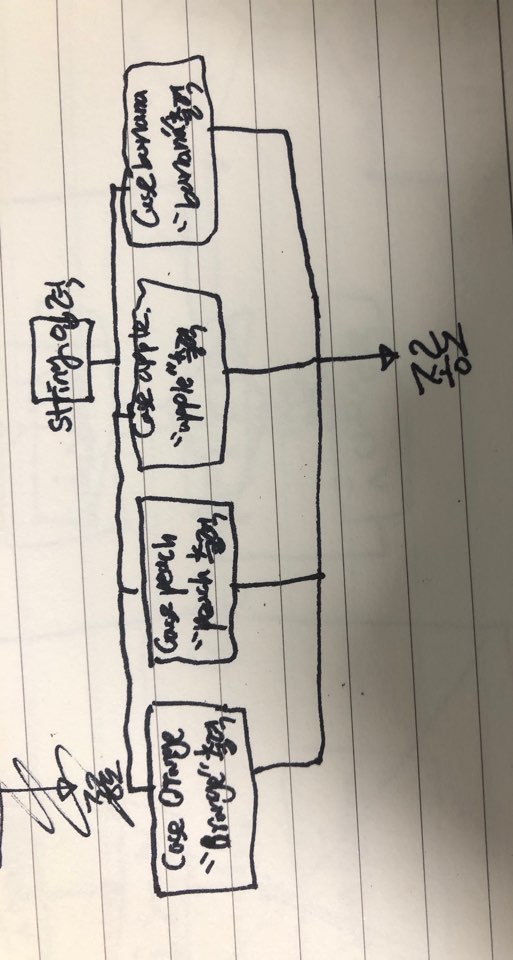 string 입력
Case Orange
"Orange" 출력
Case peach
"peach" 출력
Case apple
"apple" 출력
Case banana
"banana" 출력
종료
종료